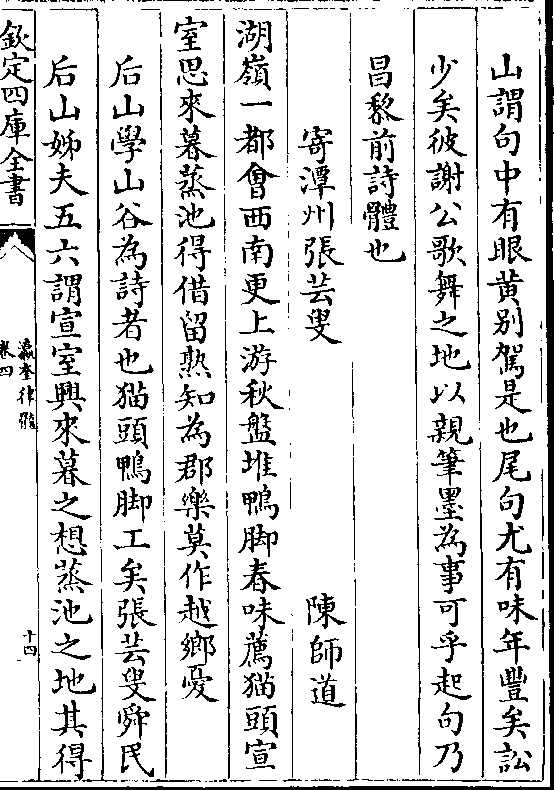 山謂句中有眼黄别駕是也尾句尤有味年豐矣訟
少矣彼謝公歌舞之地以親筆墨為事可乎起句乃
昌黎前詩體也
寄潭州張芸叟　陳師道
湖嶺一都會西南更上游秋盤堆鴨脚春味薦猫頭宣
室思來暮蒸池得借留熟知為郡樂莫作越鄉憂
后山學山谷為詩者也猫頭鴨脚工矣張芸叟舜民
后山姊夫五六謂宣室興來暮之想蒸池之地其得
欽定四庫全書
瀛奎律髓
卷四
十四